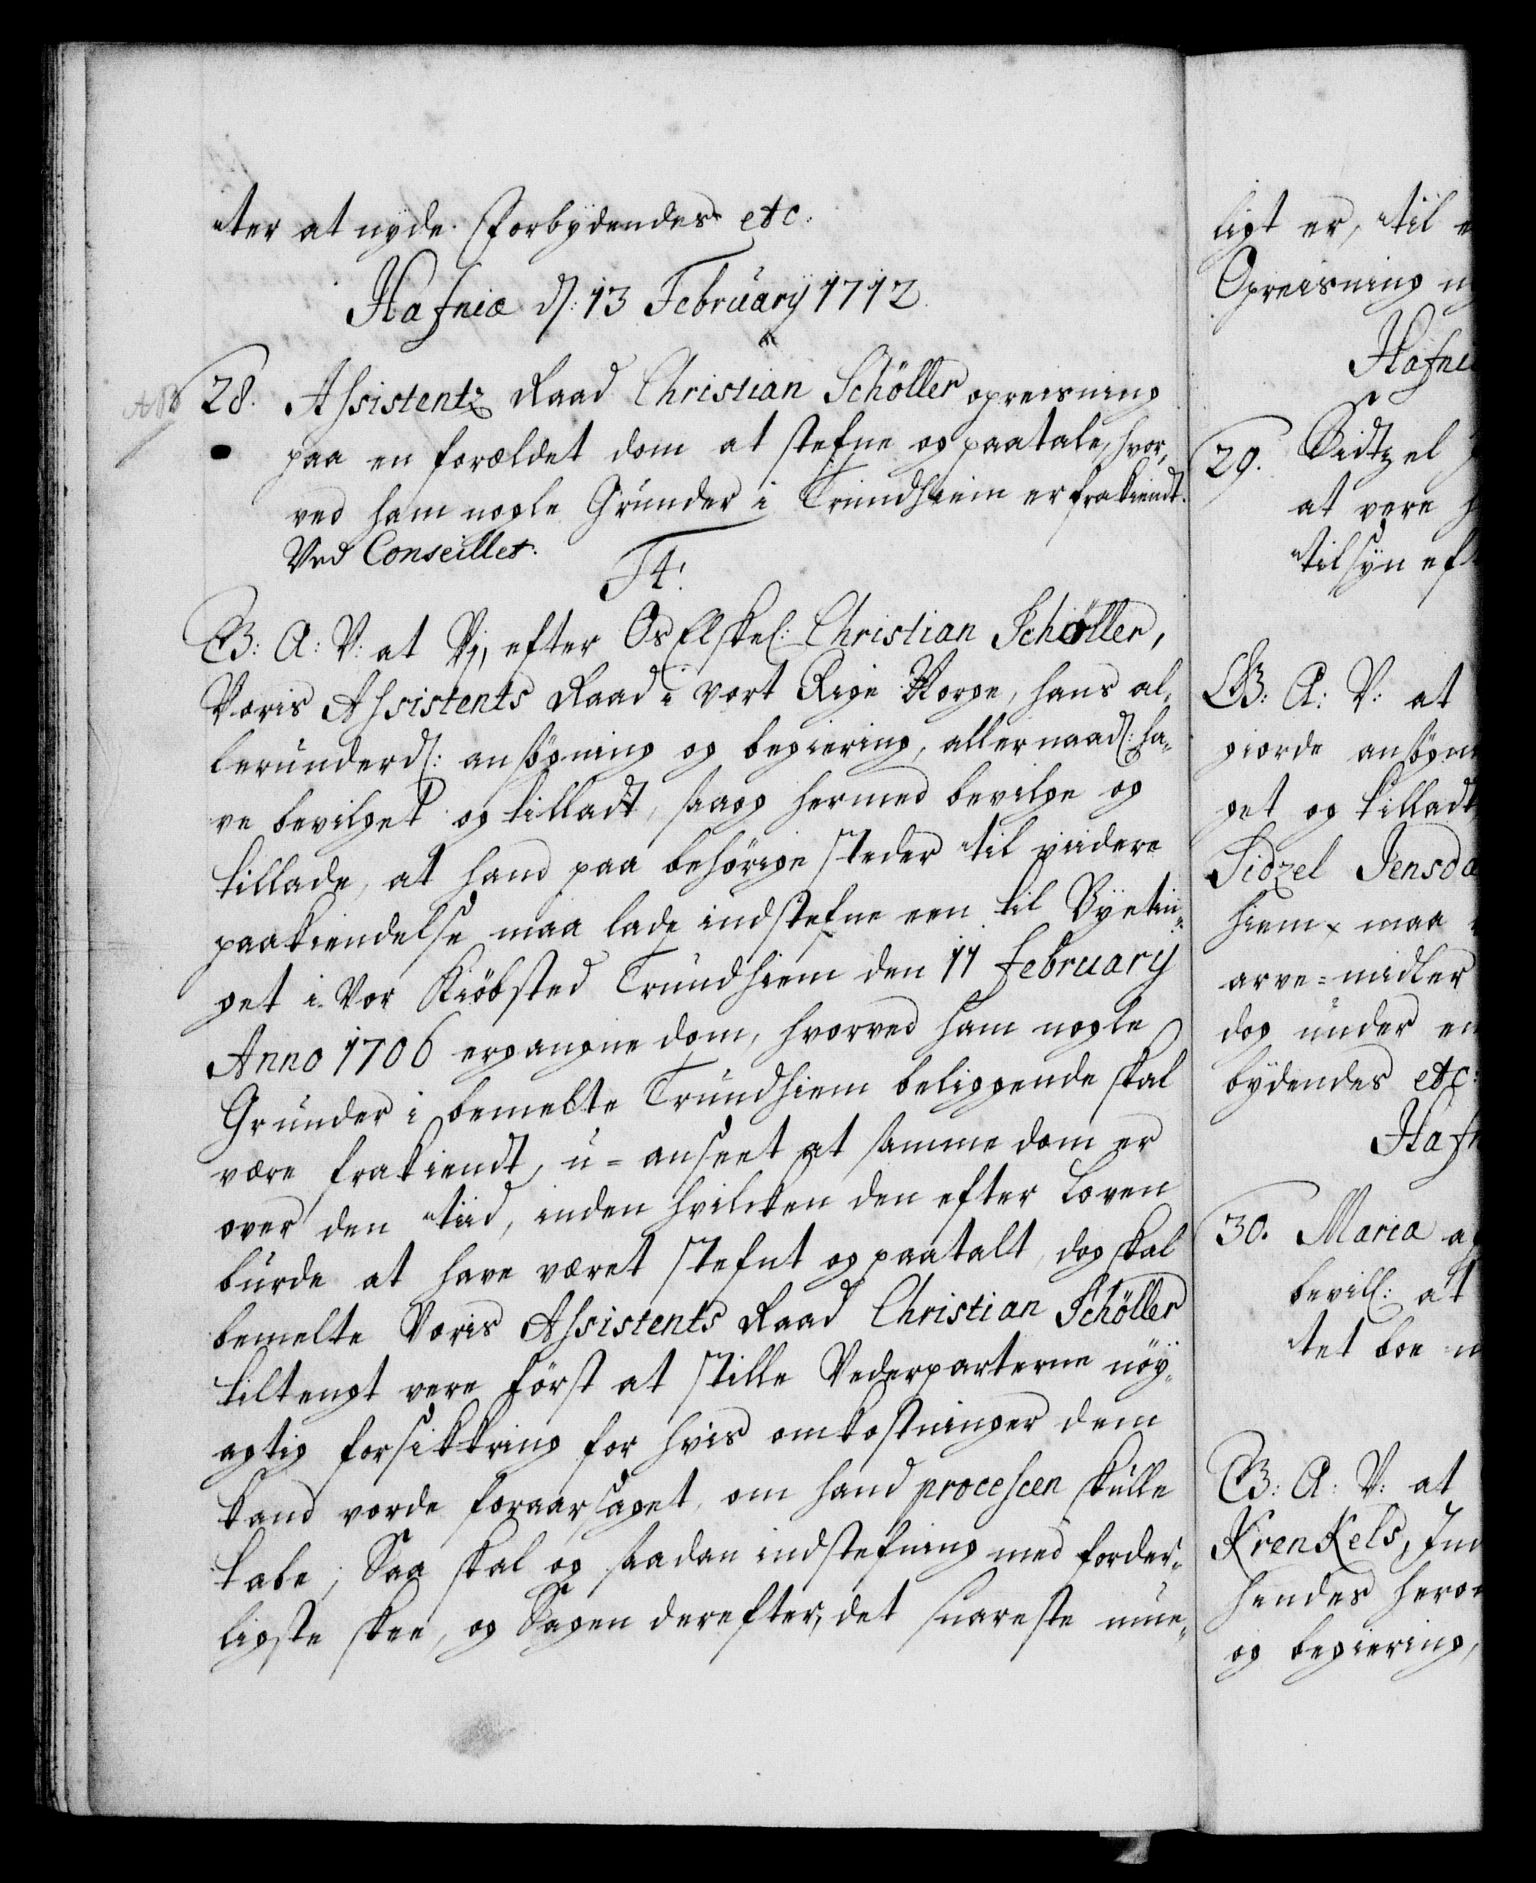 ter at nyde. Forbydendes etc.
Hafniæ d: 13 February 1712.
28. Assistentz Raad Christian Schöller opreisning
paa en forældet dom at stefne og paatale, hvor,
ved ham nogle Grunder i Trundhiem er frakiendt.
Ved Conseillet.
F4:
G: A: V: at Vj, efter Os Elskel: Christian Schöller,
Voris Assistents Raad i vort Rige Norge, hans al-
lerunderd: ansögning og begiering, allernaad: ha-
ve bevilget og tilladt, saa og hermed bevilge og
tillade, at hand paa behörige steder til viidere
paakiendelse maa lade indstefne een til Byetin-
get i Vor Kiöbsted Trundhiem den 11 february
Anno 1706 ergangne dom, hvorved ham nogle
Grunder i bemelte Trundhiem beliggende skal
være frakiendt, u-anseet at samme dom er
over den tiid, inden hvilcken den efter Loven
burde at have været stefnt og paatalt, dog skal
bemelte Voris Assistents Raad Christian Schöller
tiltengt vere först at stille Vederparterne nöy-
agtig forsikkring for hvis omkostninger dem
kand vorde foraarsaget, om hand processen skulle
tabe; Saa skal og saadan indstefning med forder-
ligste skee, og Sagen derefter, det snareste mue-
ligt er, til
Opreisning
Hafni
29. Sidtzel
at vere
tilsyn ef
G: A: V: at
giorde ansögn
get og tilladt
Sidzel Jensda
hiem maa
arve-midler
dog under en
bydendes etc:
Hafn
30. Maria
bevill: at
tet boe
G: A: V: at
Krenkels,
hendes hero
og begiering,